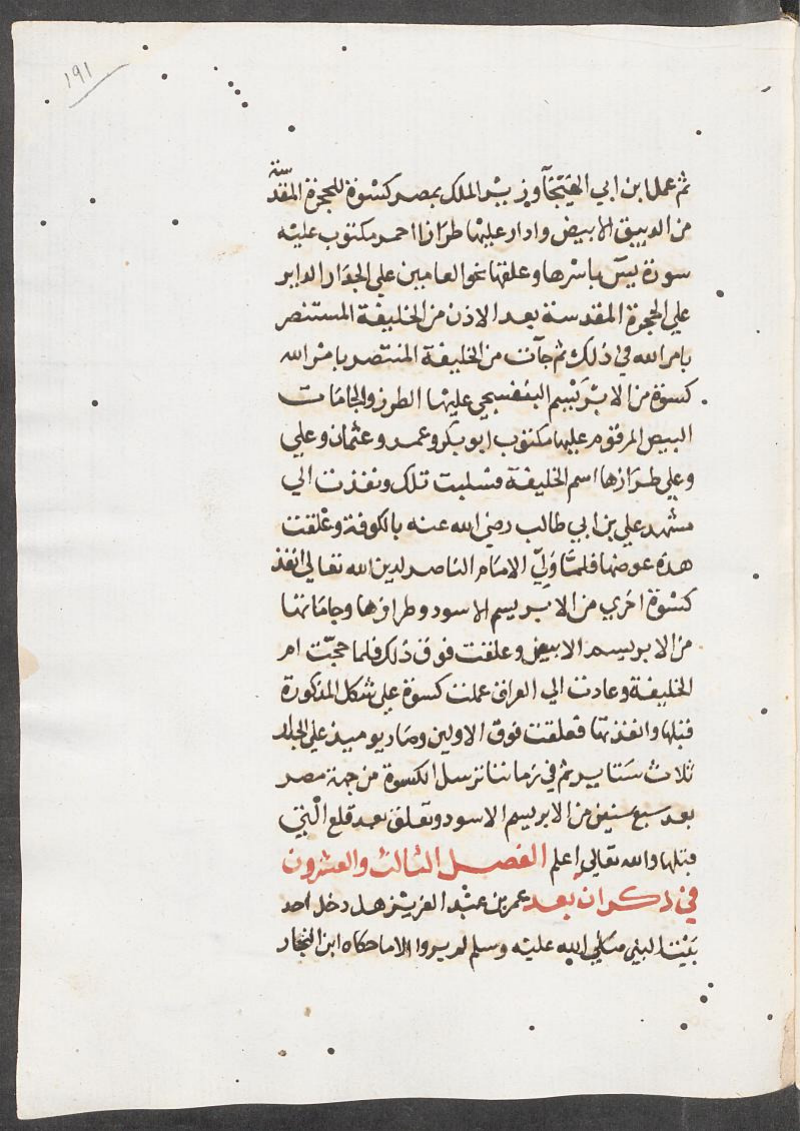 ١٩١
ثم عمل ابن ابي الهيجآ وزير الملك بمصر كسوة للحجرة المقدسة
من الدبيق الابيض وادار عليها طرازا احمر مكتوب عليه
سورة يس باسرها وعلقها نحو العامين علي الجدار الداير
علي الحجرة المقدسة بعد الاذن من الخليفة المستنصر
بامر الله في ذلك ثم جآت من الخليفة المنتصر بامر الله
كسوة من الابريسم البنفسجي عليها الطرز والجامات
البيض المرقوم عليها مكتوب ابو بكر وعمر وعثمان وعلي
وعلي طرازها اسم الخليفة فسلبت تلك ونفذت الي
مشهد علي بن ابي طالب رضي الله عنه بالكوفة وعلقت
هذه عوضها فلما ولي الامام الناصر لدين الله تعالي انفذ
كسوة اخري من الابريسم الاسود وطرازها وجاماتها
من الابريسم الابيض وعلقت فوق ذلك فلما حجت ام
الخليفة وعادت الي العراق عملت كسوة علي شكل المذكورة
قبلها وانفذتها فعلقت فوق الاولين وصار يوميذ علي
ثلاث ستاير ثم في زماننا ترسل الكسوة من جهة مصر
بعد سبع سنين من الابريسم الاسود وتعلق بعد قلع التي
قبلها والله تعالي اعلم الفصل الثالث والعشرون
في ذكر ان بعد عمر بن عبد العزيز هل دخل احد
بيت النبي صلي الله عليه وسلم لم يروا الا ما حكاه ابن النجار